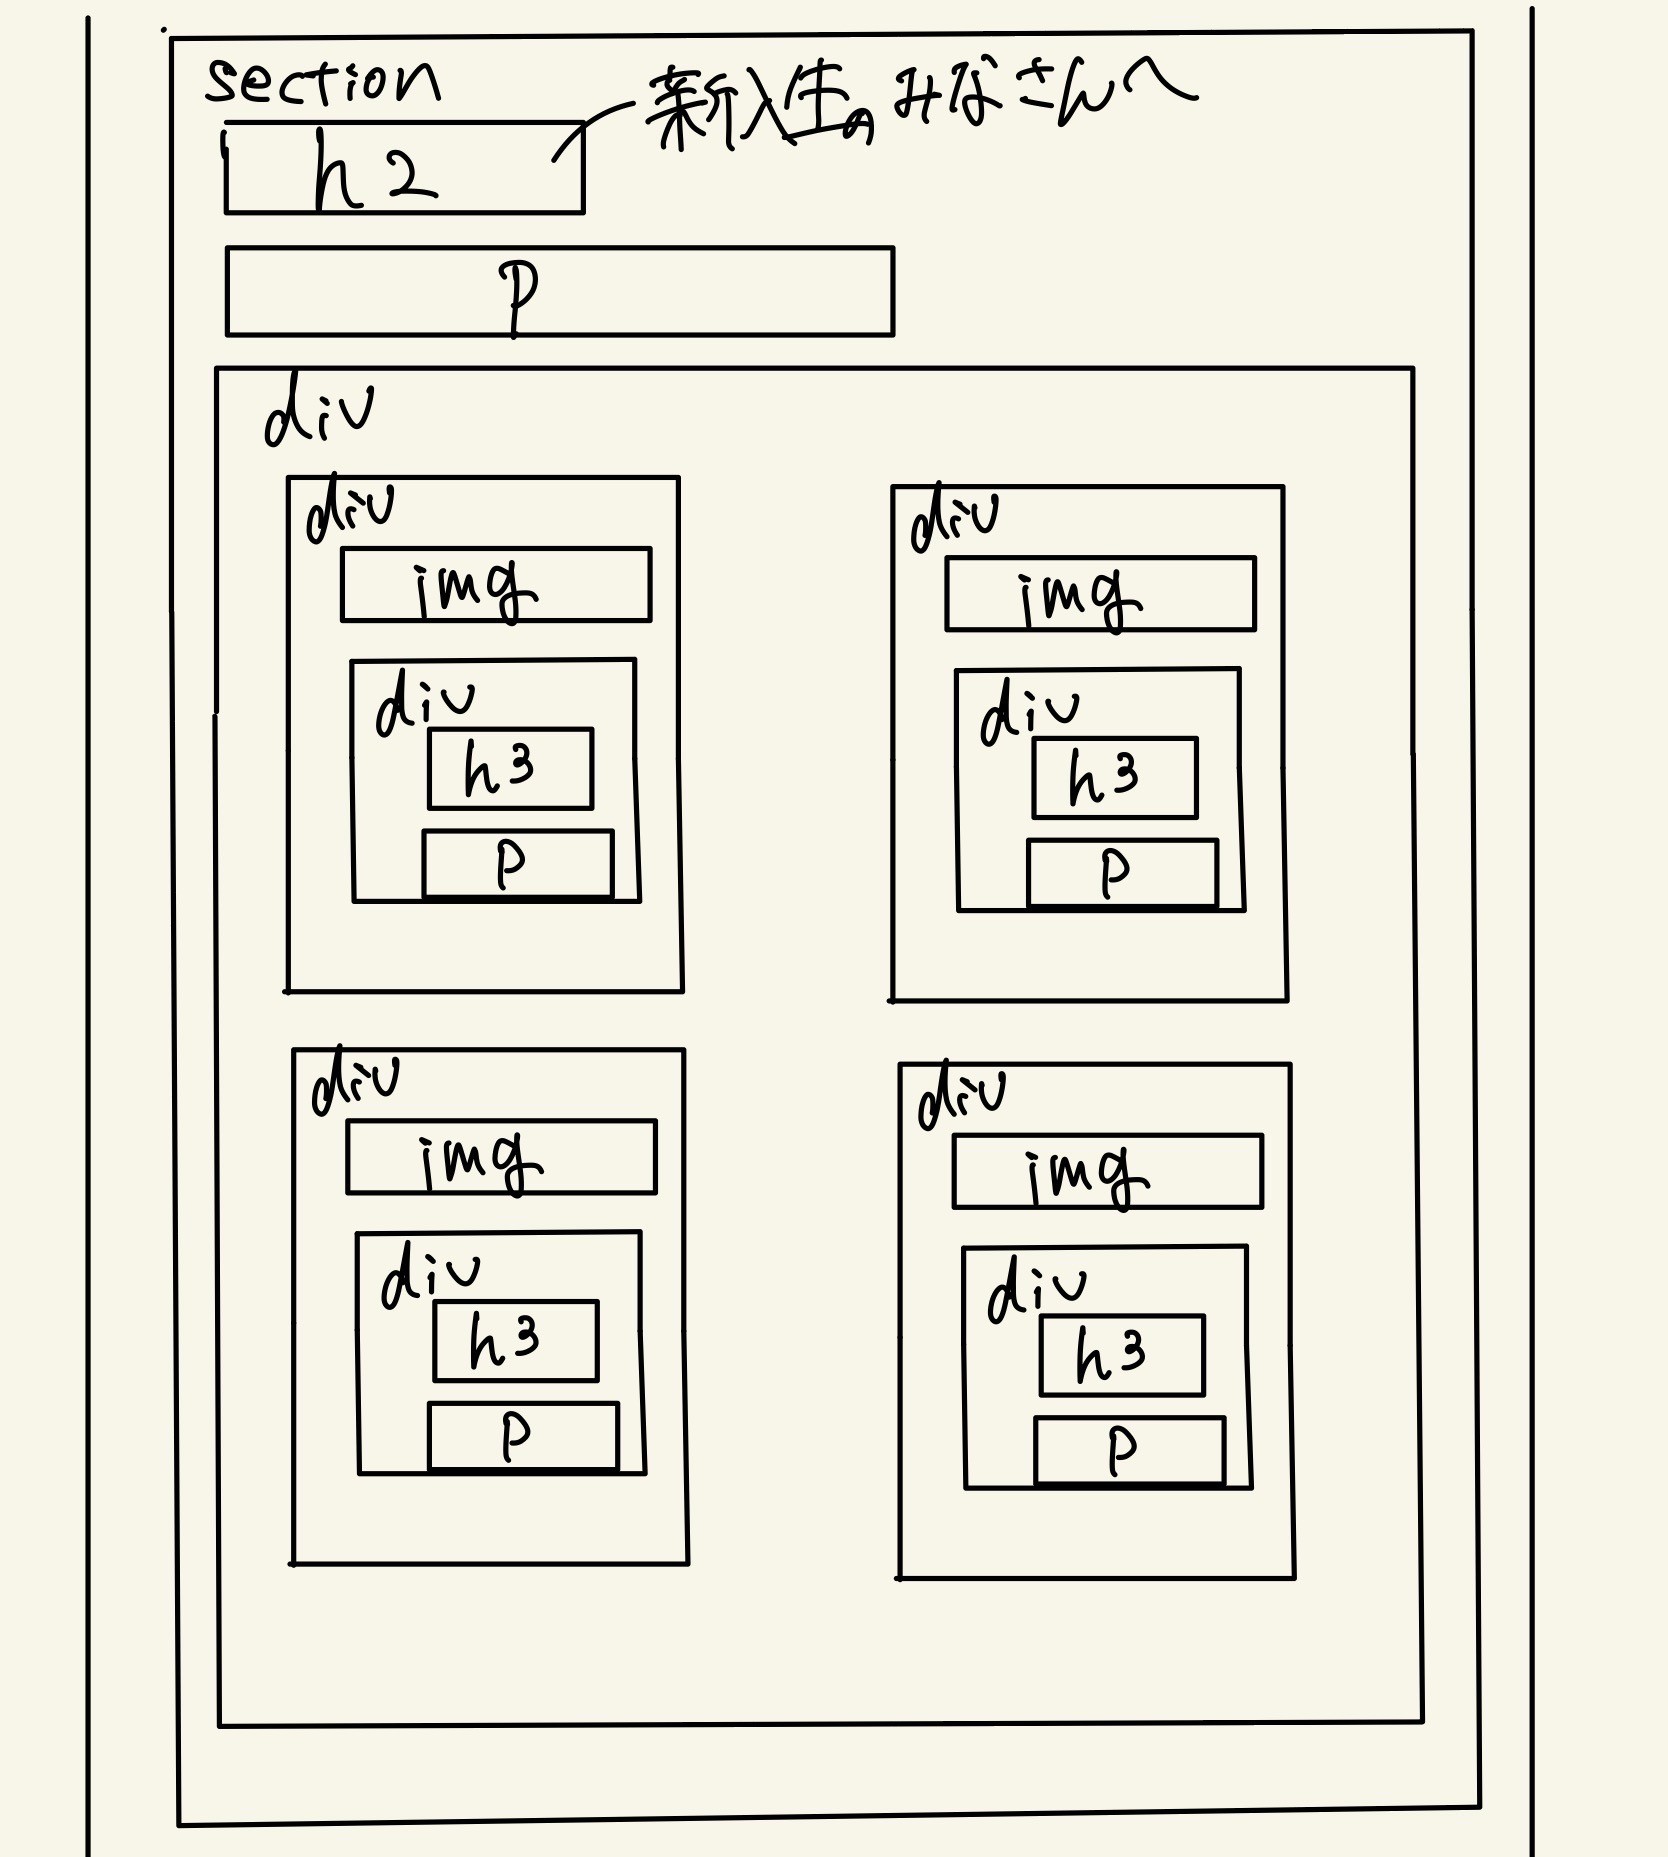 section
新入生のみなさんへ
h2
p
div
div
img
div
h3
p
div
img
div
h3
p
div
img
div
h3
p
div
img
div
h3
p